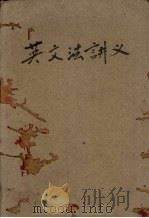 英文法讲义